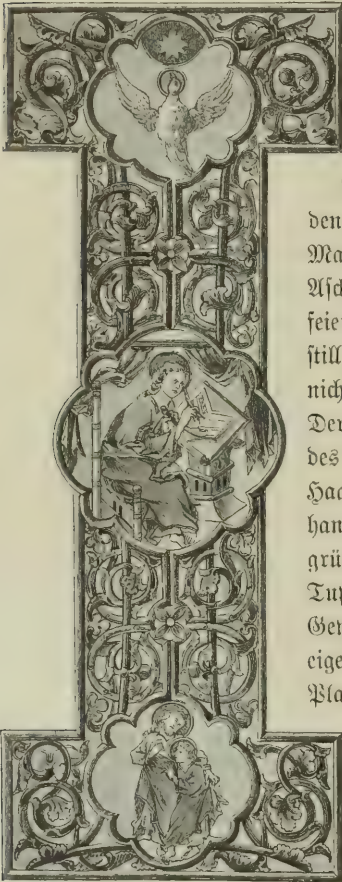 I
den
Ma
Aſch
feie
ſtill
nich
Der
des
Hac
han
grü
Tup
Get
eige
Pla